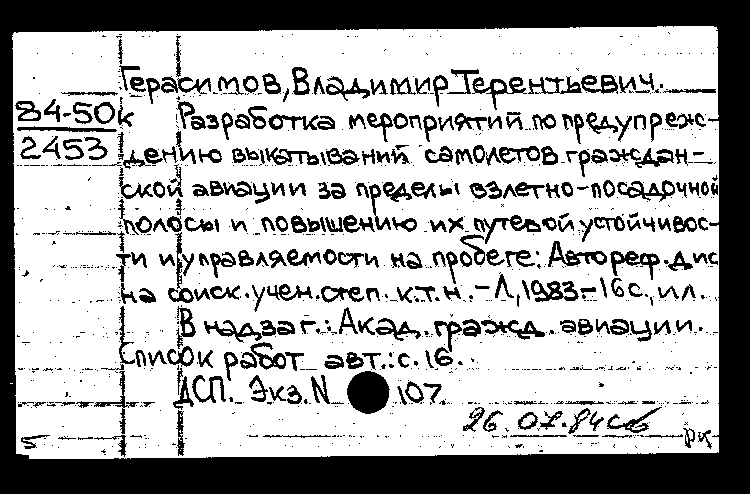 Герасимов, Владимир Терентьевич.
84-50к
2453
Разработка мероприятий по предупреж-
дению выкатываний самолетов граждан-
ской авиации за пределы взлетно-посадочной
полосы и повышению их путевой устойчивос-
ти и управляемости на пробеге: Автореф. дис
на соиск. учен. степ. к.т.н. - Л, 1983 - 16 с., ил.
В надзаг.: Акад. гражд. авиации.
Список работ авт.: с. 16.
ДСП. Экз. N 107
26.07.84
5 рк